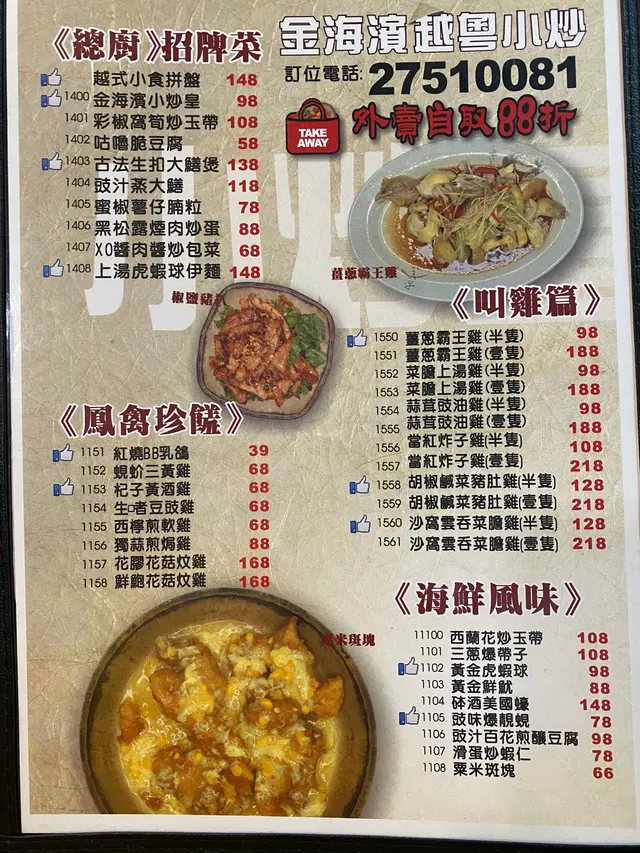 《總廚》招牌菜
越式小食拼盤 148
1400 金海濱小炒皇 98
1401 彩椒窩筍炒玉帶 108
1402 咕嚕脆豆腐 58
1403 古法生扣大鱔煲 138
1404 豉汁蒸大鱔 118
1405 蜜椒薯仔腩粒 78
1406 黑松露煙肉炒蛋 88
1407 XO醬肉醬炒包菜 68
1408 上湯虎蝦球伊麵 148
金海濱越粵小炒
訂位電話: 27510081
TAKE AWAY
外賣自取88折
薑蔥霸王雞
椒鹽豬
《叫雞篇》
1550 薑蔥霸王雞(半隻) 98
1551 薑蔥霸王雞(壹隻) 188
1552 菜膽上湯雞(半隻) 98
1553 菜膽上湯雞(壹隻) 188
1554 蒜茸豉油雞(半隻) 98
1555 蒜茸豉油雞(壹隻) 188
1556 當紅炸子雞(半隻) 108
1557 當紅炸子雞(壹隻) 218
1558 胡椒鹹菜豬肚雞(半隻) 128
1559 胡椒鹹菜豬肚雞(壹隻) 218
1560 沙窩雲吞菜膽雞(半隻) 128
1561 沙窩雲吞菜膽雞(壹隻) 218
《鳳禽珍饈》
1151 紅燒BB乳鴿 39
1152 蜆蚧三黃雞 68
1153 杞子黃酒雞 68
1154 生□者豆豉雞 68
1155 西檸煎軟雞 68
1156 獨蒜煎焗雞 88
1157 花膠花菇炆雞 168
1158 鮮鮑花菇炆雞 168
米斑塊
《海鮮風味》
11100 西蘭花炒玉帶 108
1101 三蔥爆帶子 108
1102 黃金虎蝦球 98
1103 黃金鮮魷 88
1104 砵酒美國蠔 148
1105 豉味爆靚蜆 78
1106 豉汁百花煎釀豆腐 98
1107 滑蛋炒蝦仁 78
1108 粟米斑塊 66